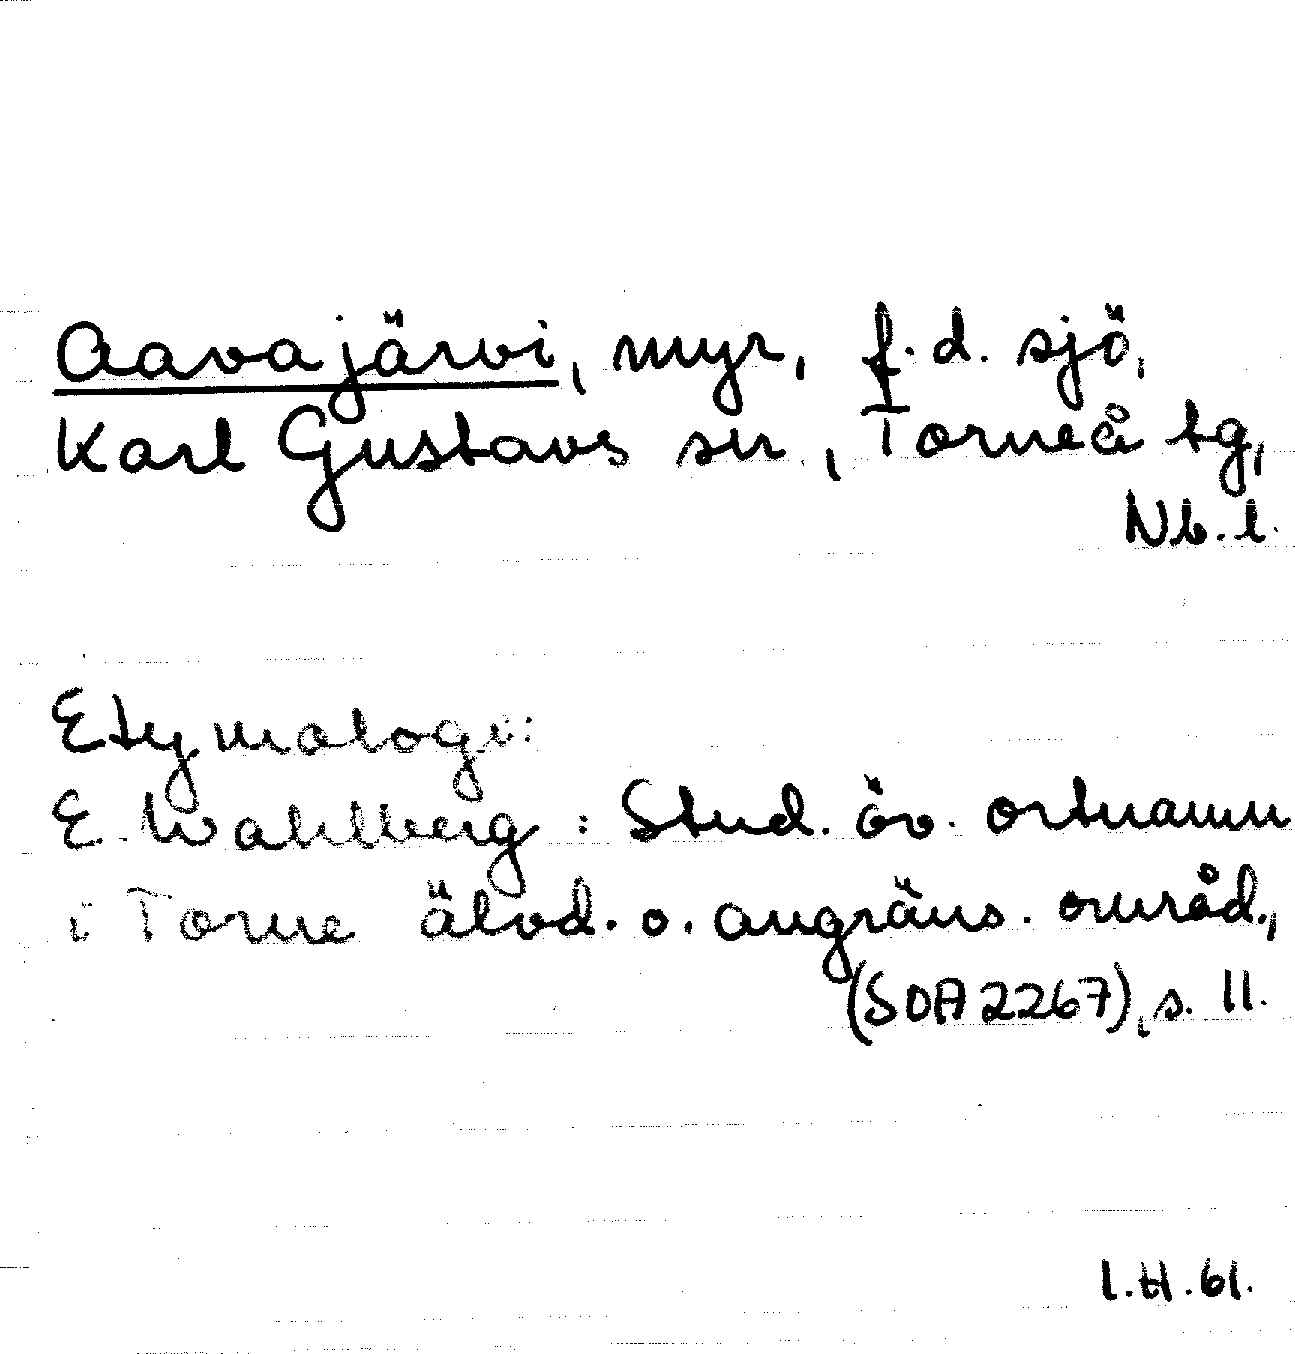 Aavajärvi, myr, f.d. sjö,
Karl Gustavs sn, Torneå tg,
Nb.l.
Etymologi:
E. Wahlberg: Stud. öv. ortnamn
i Torne älvd. o. angräns. områd.,
(SOA 2267), s. 11.
I.H.61.